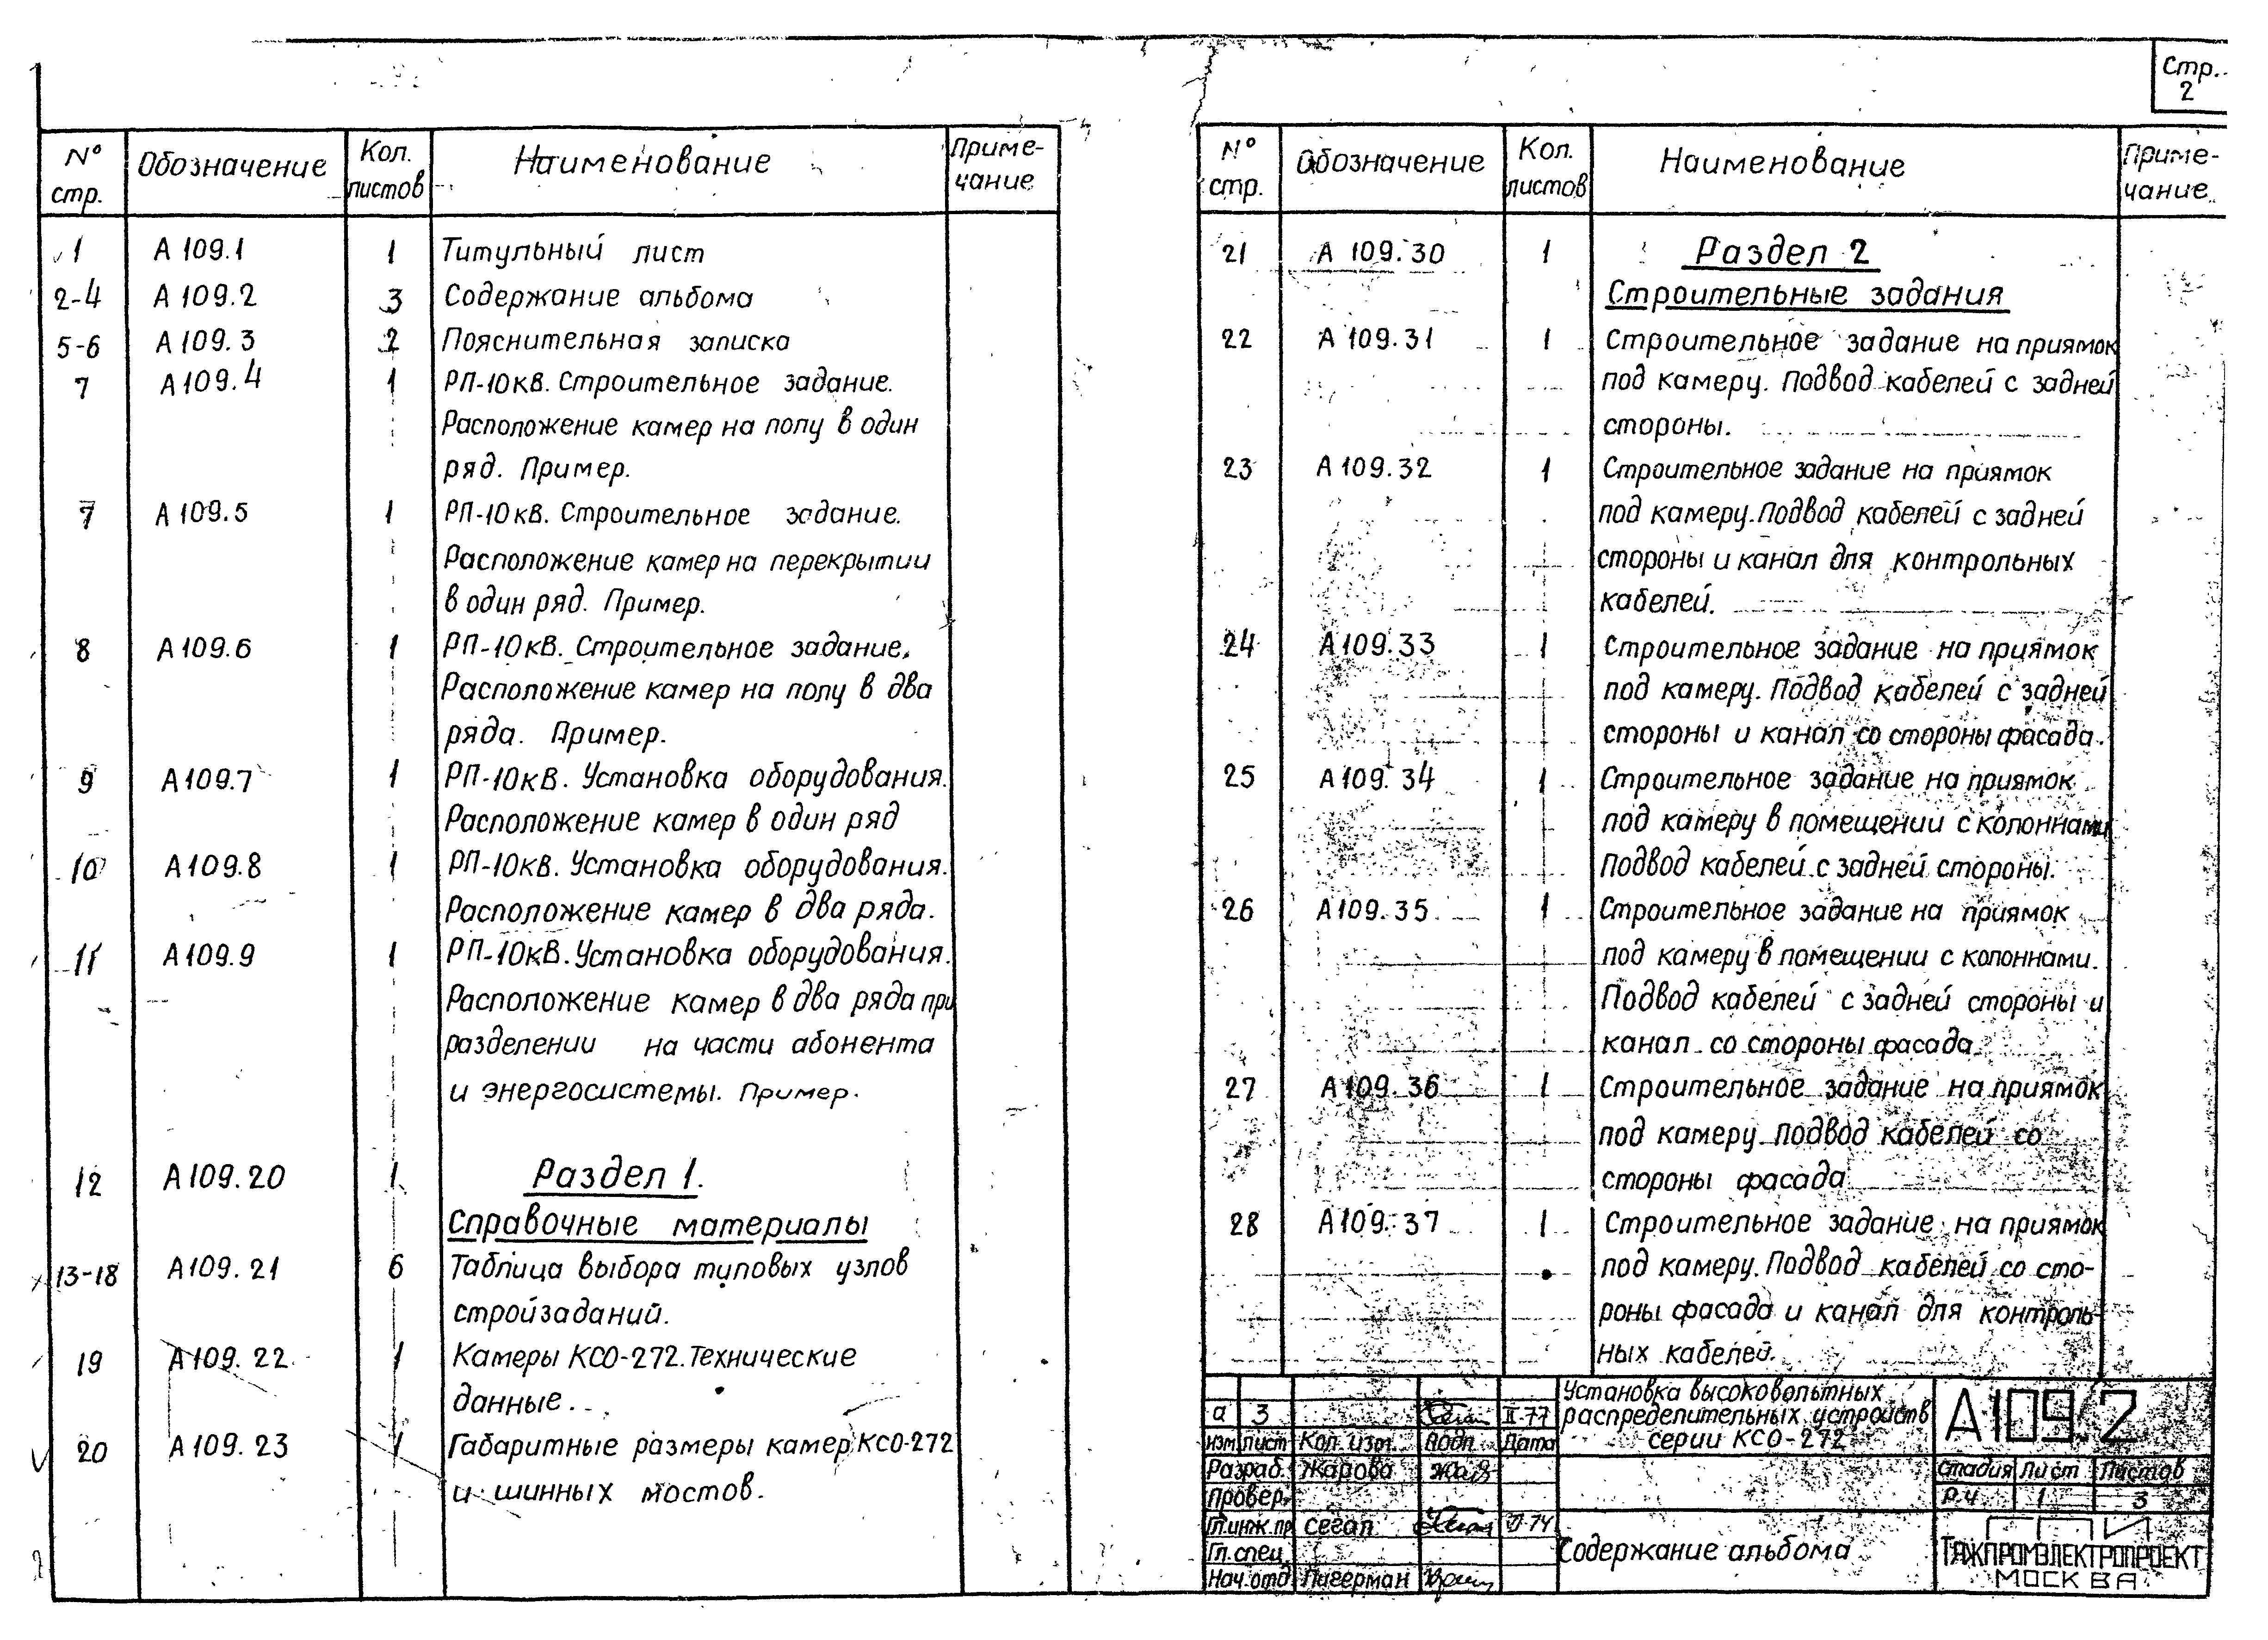 Стр.
2
№ стр. Обозначение Кол. листов Наименование Примечание
1 А 109.1 1 Титульный лист
2-4 А 109.2 3 Содержание альбома
5-6 А 109.3 2 Пояснительная записка
7 А 109.4 1 РП-10кВ. Строительное задание.
Расположение камер на полу в один
ряд. Пример.
7 А 109.5 1 РП-10кВ. Строительное задание.
Расположение камер на перекрытии
в один ряд. Пример.
8 А 109.6 1 РП-10кВ. Строительное задание.
Расположение камер на полу в два
ряда. Пример.
9 А 109.7 1 РП-10кВ. Установка оборудования.
Расположение камер в один ряд
10 А 109.8 1 РП-10кВ. Установка оборудования.
Расположение камер в два ряда.
11 А 109.9 1 РП-10кВ. Установка оборудования.
Расположение камер в два ряда при
разделении на части абонента
и энергосистемы. Пример.
12 А 109.20 1 Раздел 1.
Справочные материалы
13-18 А 109.21 6 Таблица выбора типовых узлов
стройзаданий.
19 А 109.22 1 Камеры КСО-272. Технические
данные.
20 А 109.23 1 Габаритные размеры камер КСО-272
и шинных мостов.
№ стр. Обозначение Кол. листов Наименование Примечание
21 А 109.30 1 Раздел 2
Строительные задания
22 А 109.31 1 Строительное задание на приямок
под камеру. Подвод кабелей с задней
стороны.
23 А 109.32 1 Строительное задание на приямок
под камеру. Подвод кабелей с задней
стороны и канал для контрольных
кабелей.
24 А 109.33 1 Строительное задание на приямок
под камеру. Подвод кабелей с задней
стороны и канал со стороны фасада.
25 А 109.34 1 Строительное задание на приямок
под камеру в помещении с колоннами
Подвод кабелей с задней стороны.
26 А 109.35 1 Строительное задание на приямок
под камеру в помещении с колоннами.
Подвод кабелей с задней стороны и
канал со стороны фасада.
27 А 109.36 1 Строительное задание на приямок
под камеру. Подвод кабелей со
стороны фасада
28 А 109.37 1 Строительное задание на приямок
под камеру. Подвод кабелей со сто-
роны фасада и канал для контроль-
ных кабелей.
а 3 II-77
Изм. лист Кол. изм. Подп. Дата
Разраб. Жарова
Провер.
Гл.инж.пр Сегал VI-74
Гл.спец.
Нач.отд Лигерман
Установка высоковольтных
распределительных устройств
серии КСО-272
Содержание альбома
А109.2
Стадия Лист Листов
Р.Ч 1 3
ТЯЖПРОМЭЛЕКТРОПРОЕКТ
МОСКВА